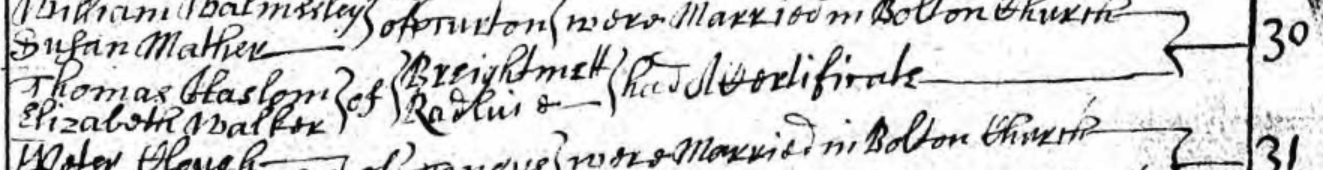 William Walmesley of Turton were Married in Bolton Church
Susan Mather 30
Thomas Haslom of Breightmett had A Certificate
Elizabeth Walker Radlivie
Peter Clough of were Married in Bolton Church 31